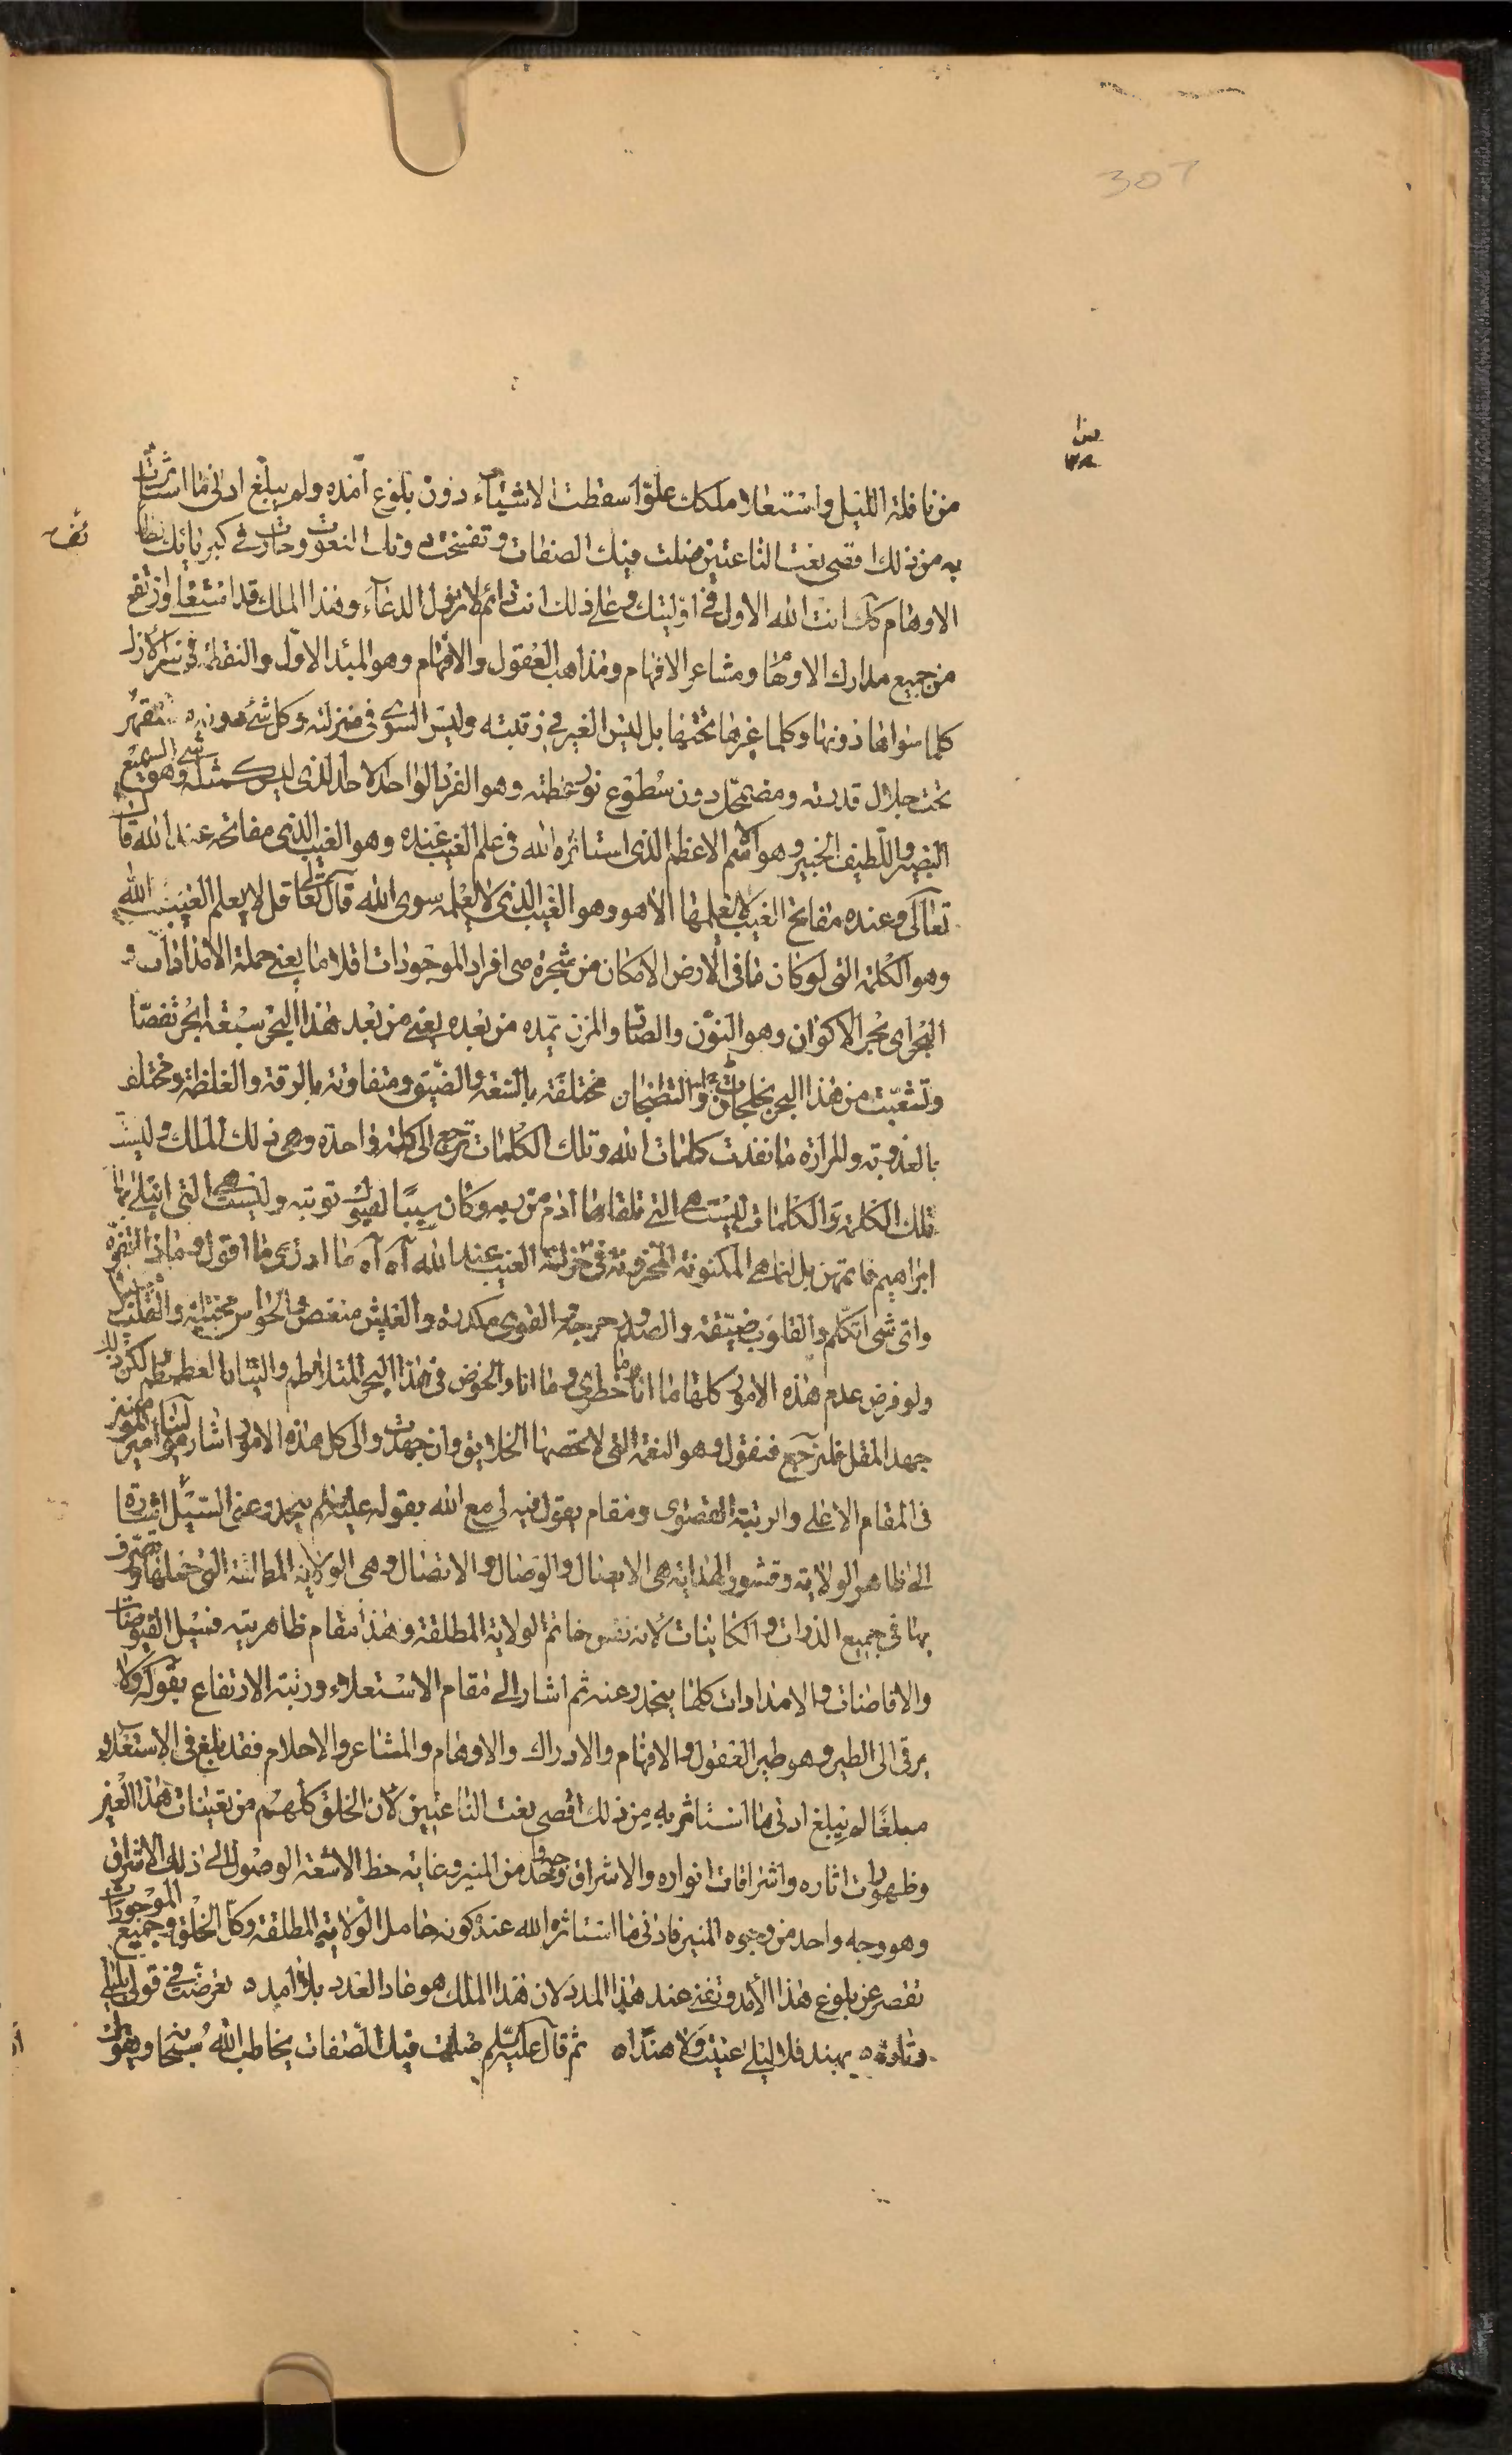 307
من نافلة الليل واستعلا ملكك علوّا سقطت الاشياء دون بلوغ امده ولم يبلغ ادنى ما استاثرت
به من ذلك اقصى نعت الناعتين ضلت فيك الصفات وتفسخت دونك النعوت وحارت في كبريائك لطائف
الاوهام كذلك انت الله الاول في اوليتك وعلى ذلك انت دائم لا تزول الدعاء وهذا الملك قد استعلى وارتفع
من جميع مدارك الاوهام ومشاعر الافهام ومذاهب العقول والافهام وهو المبدء الاول والنقطة في
كلما سواها دونها وكلما غيرها تحتها بل ليس الغير في رتبته وليس السوى في منزلته وكل شئ دونه متقهر
تحت جلال قدرته ومضمحل دون سطوع نور عظمته وهو الفرد الواحد الاحد الذي ليس كمثله شئ وهو السميع
البصير واللطيف الخبير وهو الاسم الاعظم الذي استاثره الله في علم الغيب عنده وهو الغيب الذي مفاتحه عند الله قال
تعالى وعنده مفاتح الغيب لا يعلمها الا هو وهو الغيب الذي لا يعلمه سوى الله قال تعالى قل لا يعلم الغيب الله
وهو الكلمة التي لو كان ما في الارض الامكان من شجرة من افراد الموجودات اقلاما يعني حملة الامدادات و
البحر اي بحر الاكوان وهو النون والصاد والمزن يمده من بعده يعني من بعد هذا البحر سبعة ابحر
وتشعبت من هذا البحر بخلجان مختلفة بالسعة والضيق ومتفاوتة بالرقة والغلظة ومختلفة
بالعذوبة والمرارة ما نفدت كلمات الله وتلك الكلمات ترجع الى كلمة واحدة وهي ذلك الملك وليست
تلك الكلمة والكلمات ليست هي التي تلقاها ادم من ربه وكان سببا لقبول توبته وليست هي التي ابتلى بها
ابراهيم فاتمهن بل انما هي المكنونة المخزونة في خزانة الغيب عند الله آه آه ما ادري ما اقول وماذا اتفوه
واي شئ اتكلم والقلوب ضيقة والصدور حرجة والقوى مكدرة والعيش منغص والحواس مختلة والقلب
ولو فرض عدم هذه الامور كلها ما انا وما خطري وما انا والخوض في هذا البحر المتلاطم لكن
جهد المقل فلنرجع فنقول وهو النعمة التي لا تحصيها الخلايق وان جهدت والى كل هذه الامور اشار مولينا امير المؤمنين
في المقام الاعلى والرتبة القصوى ومقام يقول فيه لي مع الله بقوله عليه السلم ينحدر عني السيل اشارة
الى ظاهر الولاية وقشور الهداية هي الاتصال والوصال والاتصال وهي الولاية المطلقة التي جعلها وتصرف
بها في جميع الذوات والكائنات لانه نفس خاتم الولاية المطلقة وهذا مقام ظاهريته فسيل الفيوضات
والافاضات والامدادات كلها ينحدر عنه ثم اشار الى مقام الاستعلاء ورتبة الارتفاع بقوله ولا
يرقى الى الطير وهو طير العقول والافهام والادراك والاوهام والمشاعر والاحلام فقد بلغ في الاستعلاء
مبلغا لم يبلغ ادنى ما استاثر به من ذلك اقصى نعت الناعتين لان الخلق كلهم من تعينات هذا الغير
وظهورات اثاره واشراقات انواره والاشراق وجه واحد من المنير وغاية حظ الاشعة الوصول الى ذلك الاشراق
وهو وجه واحد من وجوه المنير فادنى ما استاثره الله عنده كونه حامل الولاية المطلقة وكل الخلق وجميع الموجودات
تقصر عن بلوغ هذا الامد وتفنى عند هذا المدد لان هذا الملك هو عاد العدد بلا امد ه تعرضت في قولي بليلى
وتارة ه بهند فلا ليلى عنيت ولا هندا ه ثم قال عليه السلم ضلت فيك الصفات يخاطب الله سبحانه ويقول